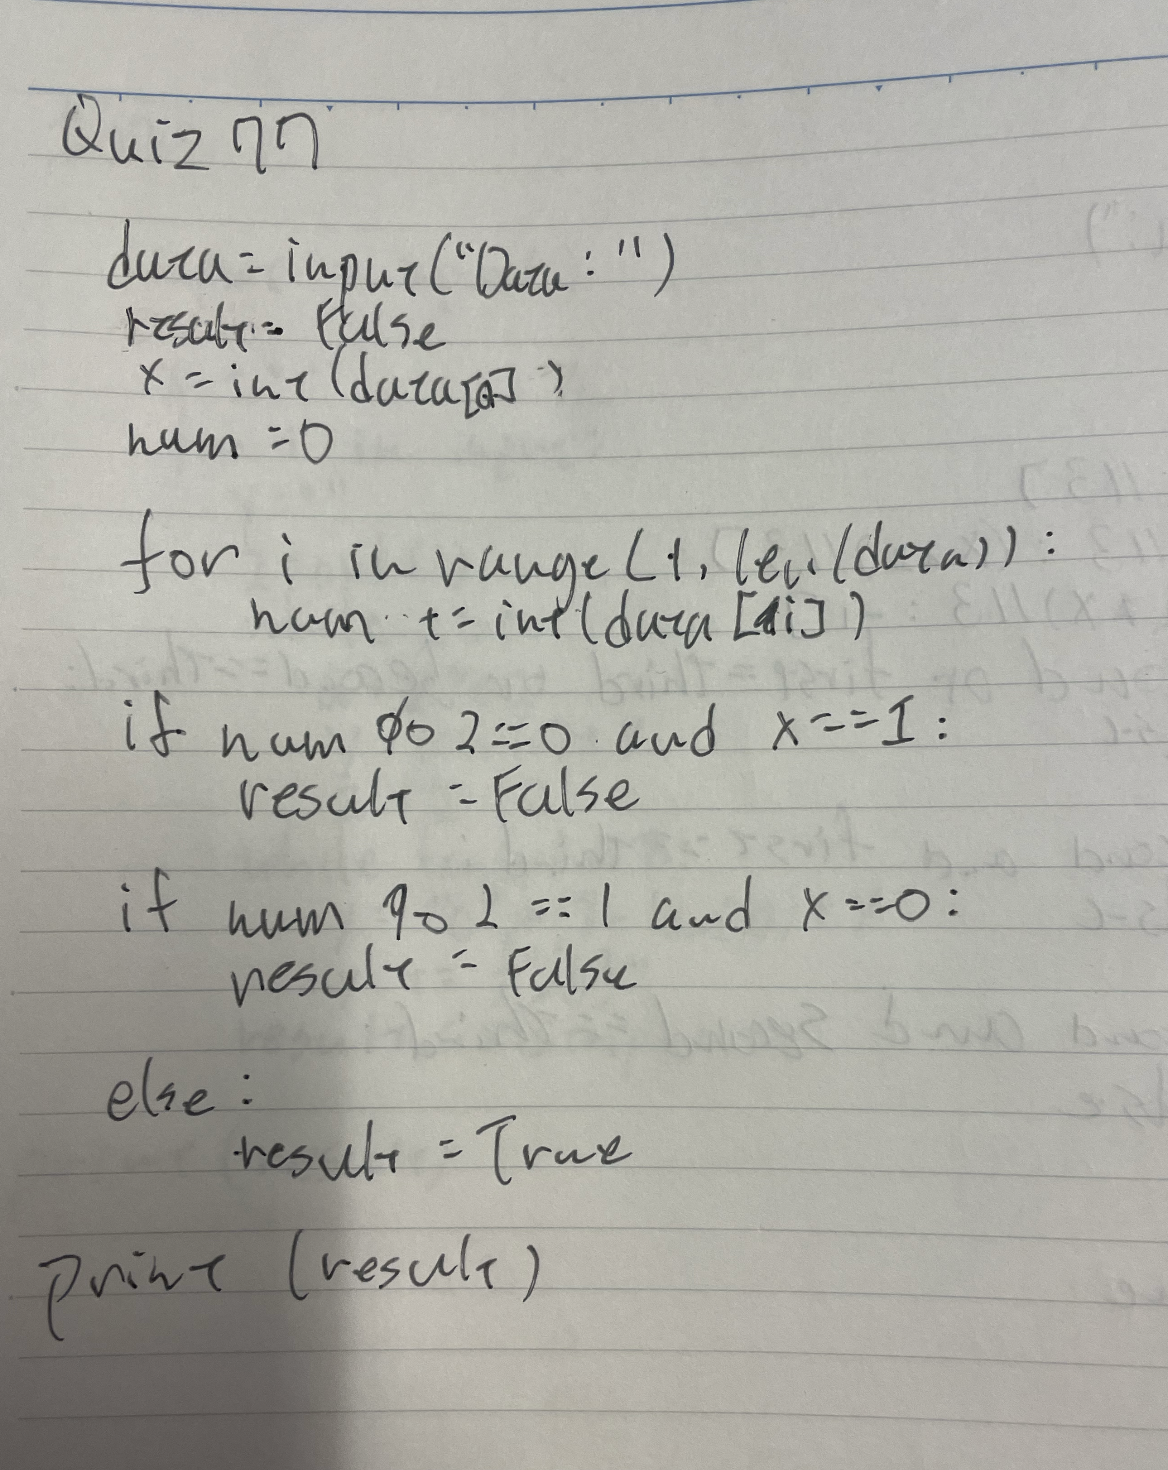 Quiz 77
data = input("Data: ")
result = False
x = int(data[0])
num = 0
for i in range(1, len(data)):
num += int(data[i])
if num % 2 == 0 and x == 1:
result = False
if num % 2 == 1 and x == 0:
result = False
else:
result = True
print (result)